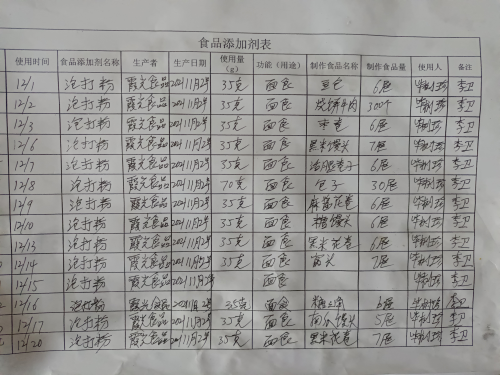 食品添加剂表
使用时间 食品添加剂名称 生产者 生产日期 使用量（g） 功能（用途） 制作食品名称 制作食品量 使用人 备注
12/1 泡打粉 霞光食品 2021.11月2号 35克 面食 豆包 6层 李卫
12/2 泡打粉 霞光食品 2021.11月2号 35克 面食 300个 李卫
12/3 泡打粉 霞光食品 2021.11月2号 35克 面食 枣卷 6层 李卫
12/6 泡打粉 霞光食品 2021.11月2号 35克 面食 黑米馒头 7层 李卫
12/7 泡打粉 霞光食品 2021.11月2号 35克 面食 6层 李卫
12/8 泡打粉 霞光食品 2021.11月2号 70克 面食 包子 30层 李卫
12/9 泡打粉 霞光食品 2021.11月2号 35克 面食 麻酱花卷 6层 李卫
12/10 泡打粉 霞光食品 2021.11月2号 35克 面食 糖馒头 6层 李卫
12/13 泡打粉 霞光食品 2021.11月2号 35克 面食 黑米花卷 6层 李卫
12/14 泡打粉 霞光食品 2021.11月2号 35克 面食 窝头 7层 李卫
12/15 泡打粉 面食 李卫
12/16 泡打粉 霞光食品 2021.11月2号 35克 面食 糖三角 6层 李卫
12/17 泡打粉 霞光食品 2021.11月2号 35克 面食 馒头 5层 李卫
12/20 泡打粉 霞光食品 2021.11月2号 35克 面食 黑米花卷 7层 李卫